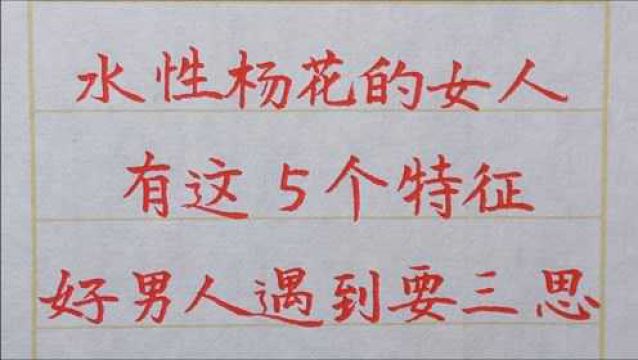 水性杨花的女人
有这5个特征
好男人遇到要三思